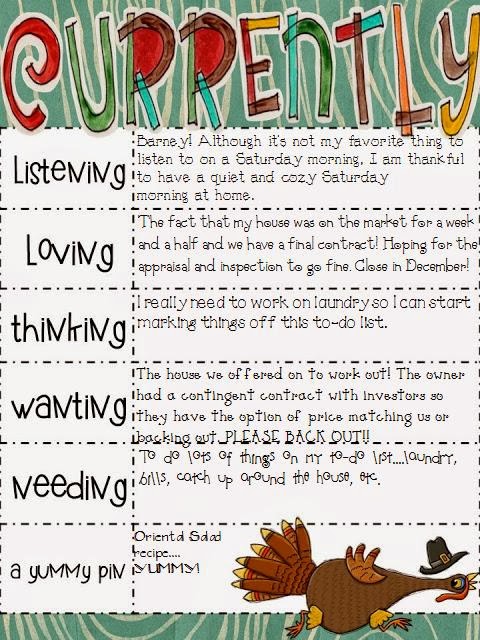 CURRENTLY
Listening
Barney! Although it's not my favorite thing to
listen to on a Saturday morning, I am thankful
to have a quiet and cozy Saturday
morning at home.
Loving
The fact that my house was on the market for a week
and a half and we have a final contract! Hoping for the
appraisal and inspection to go fine. Close in December!
thinking
I really need to work on laundry so I can start
marking things off this to-do list.
wanting
The house we offered on to work out! The owner
had a contingent contract with investors so
they have the option of price matching us or
backing out. PLEASE BACK OUT!!
needing
To do lots of things on my to-do list....laundry,
bills, catch up around the house, etc.
a yummy pin
Oriental Salad
recipe....
YUMMY!